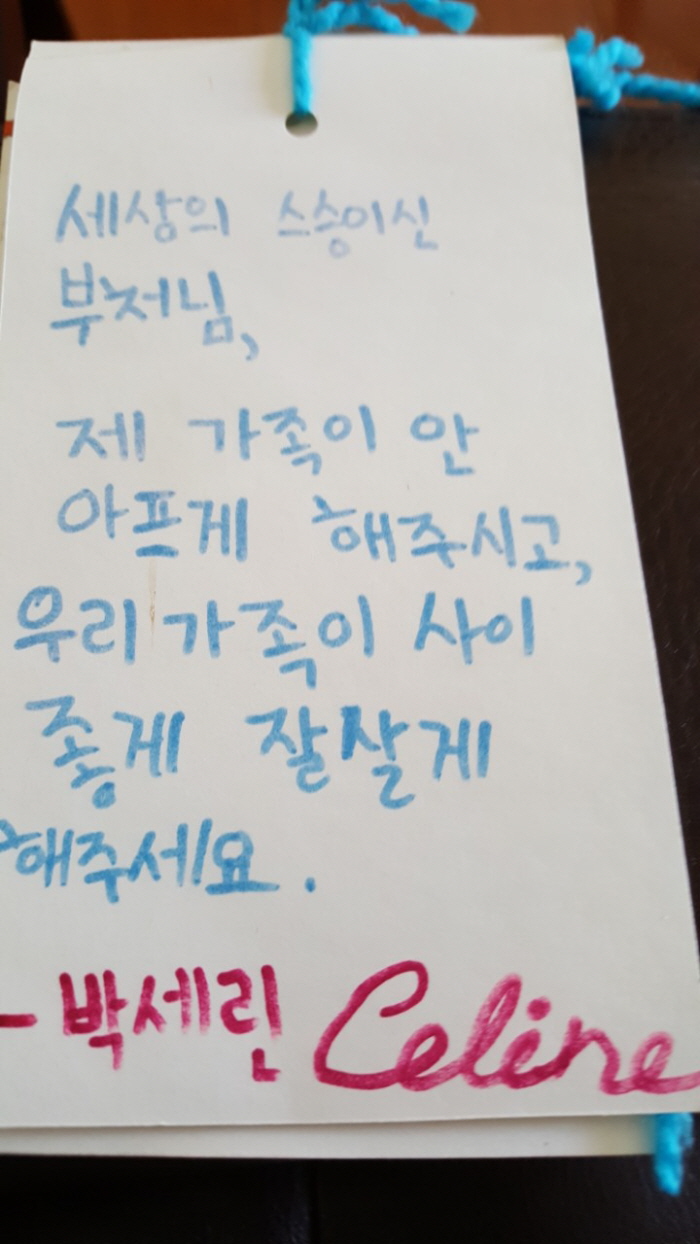 세상의 스승이신
부처님,
제 가족이 안
아프게 해주시고,
우리 가족이 사이
좋게 잘살게
해주세요.
- 박세린 Celine